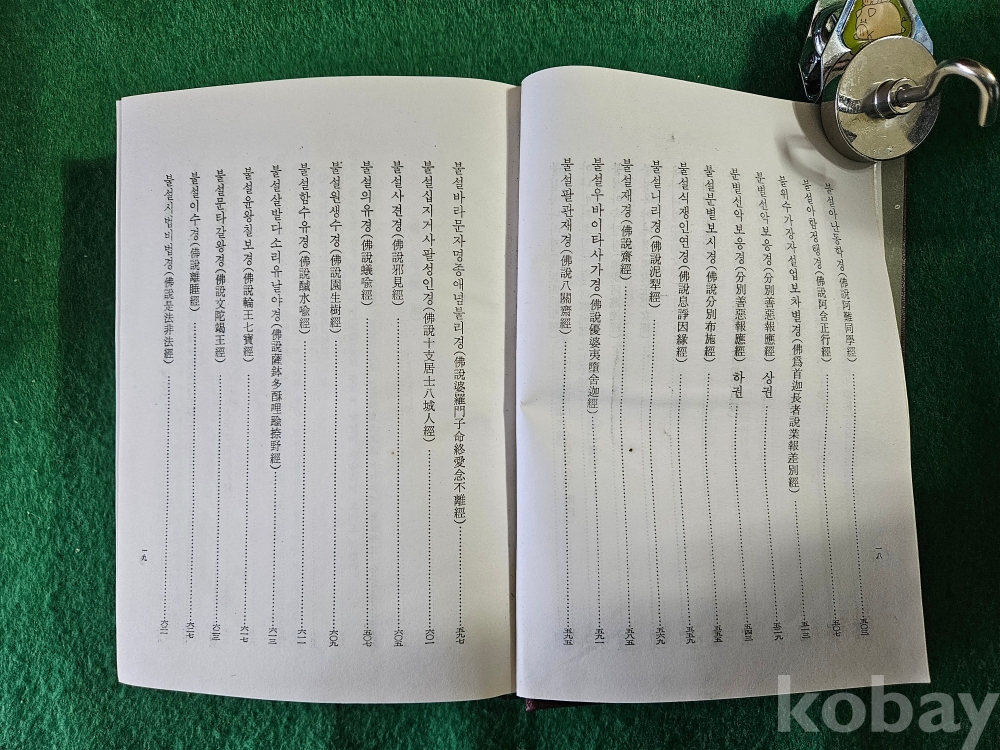 불설아난동학경(佛說阿難同學經)……五〇三
불설아함정행경(佛說阿含正行經)……五〇七
불위수가장자설업보차별경(佛爲首迦長者說業報差別經)……五一三
분별선악보응경(分別善惡報應經) 상권……五二九
분별선악보응경(分別善惡報應經) 하권……五四三
불설분별보시경(佛說分別布施經)……五五五
불설식쟁인연경(佛說息諍因緣經)……五五九
불설니리경(佛說泥犁經)……五六九
불설재경(佛說齋經)……五八五
불설우바이타사가경(佛說優婆夷墮舍迦經)……五九一
불설팔관재경(佛說八關齋經)……五九五
一八
불설바라문자명종애념불리경(佛說婆羅門子命終愛念不離經)……五九七
불설십지거사팔성인경(佛說十支居士八城人經)……六〇一
불설사견경(佛說邪見經)……六〇五
불설의유경(佛說蟻喩經)……五〇七
불설원생수경(佛說園生樹經)……六〇九
불설함수유경(佛說鹹水喩經)……六一一
불설살발다소리유날야경(佛說薩鉢多酥哩踰捺野經)……六一三
불설윤왕칠보경(佛說輪王七寶經)……六一七
불설문타갈왕경(佛說文陀竭王經)……六二三
불설이수경(佛說離睡經)……六二七
불설시법비법경(佛說是法非法經)……六三一
一九
kobay